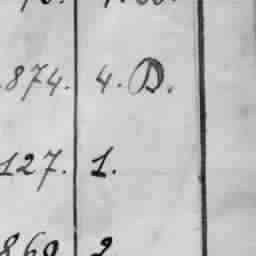 874. 4. D.
127. 1.
860 2